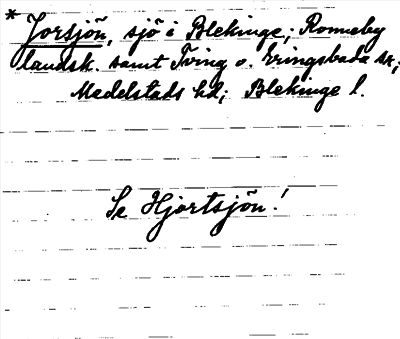 * Jorsjön, sjö i Blekinge; Ronneby
landsk. samt Tving o. Eringsboda sk;
Medelstads hd; Blekinge l.
Se Hjortsjön!